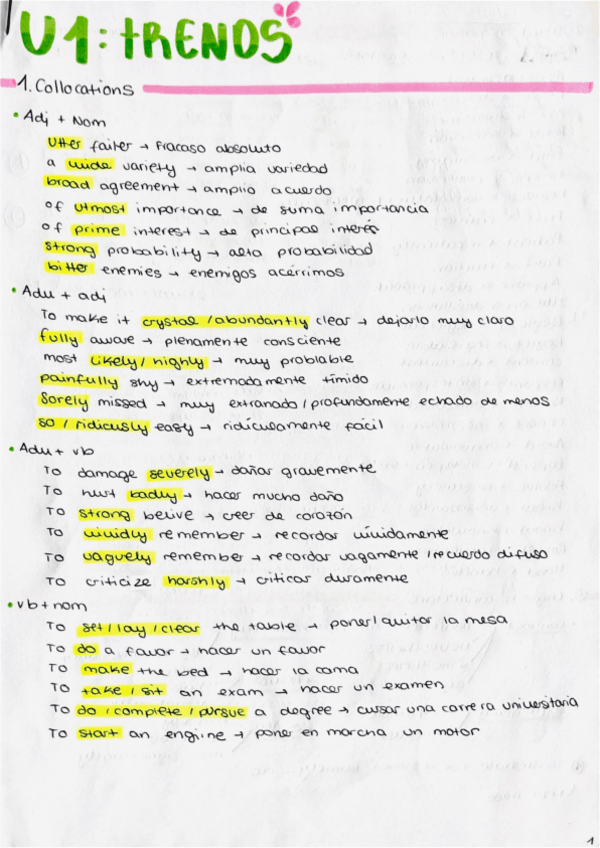 U1: TRENDS
1. Collocations
• Adj + Nom
Utter failer → Fracaso absoluto
a wide variety → amplia variedad
broad agreement → amplio acuerdo
of utmost importance → de suma importancia
of prime interest → de principal interés
strong probability → alta probabilidad
bitter enemies → enemigos acérrimos
• Adu + adj
To make it crystal / abundantly clear → dejarlo muy claro
fully aware → plenamente consciente
most likely / highly → muy problable
painfully shy → extremadamente tímido
Sorely missed → muy extranado / profundamente echado de menos
so / ridicusly easy → ridículamente fácil
• Adu + vb
To damage severely → dañar gravemente
To hurt badly → hacer mucho daño
To strong belive → creer de corazón
To vividly remember → recordar vívidamente
To vaguely remember → recordar vagamente / recuerdo difuso
To criticize harshly → criticar duramente
• vb + nom
To set / lay / clear the table → poner / quitar la mesa
To do a favor → hacer un favor
To make the bed → hacer la cama
To take / sit an exam → hacer un examen
To do / complete / pursue a degree → cursar una carrera universitaria
To start an engine → poner en marcha un motor
1